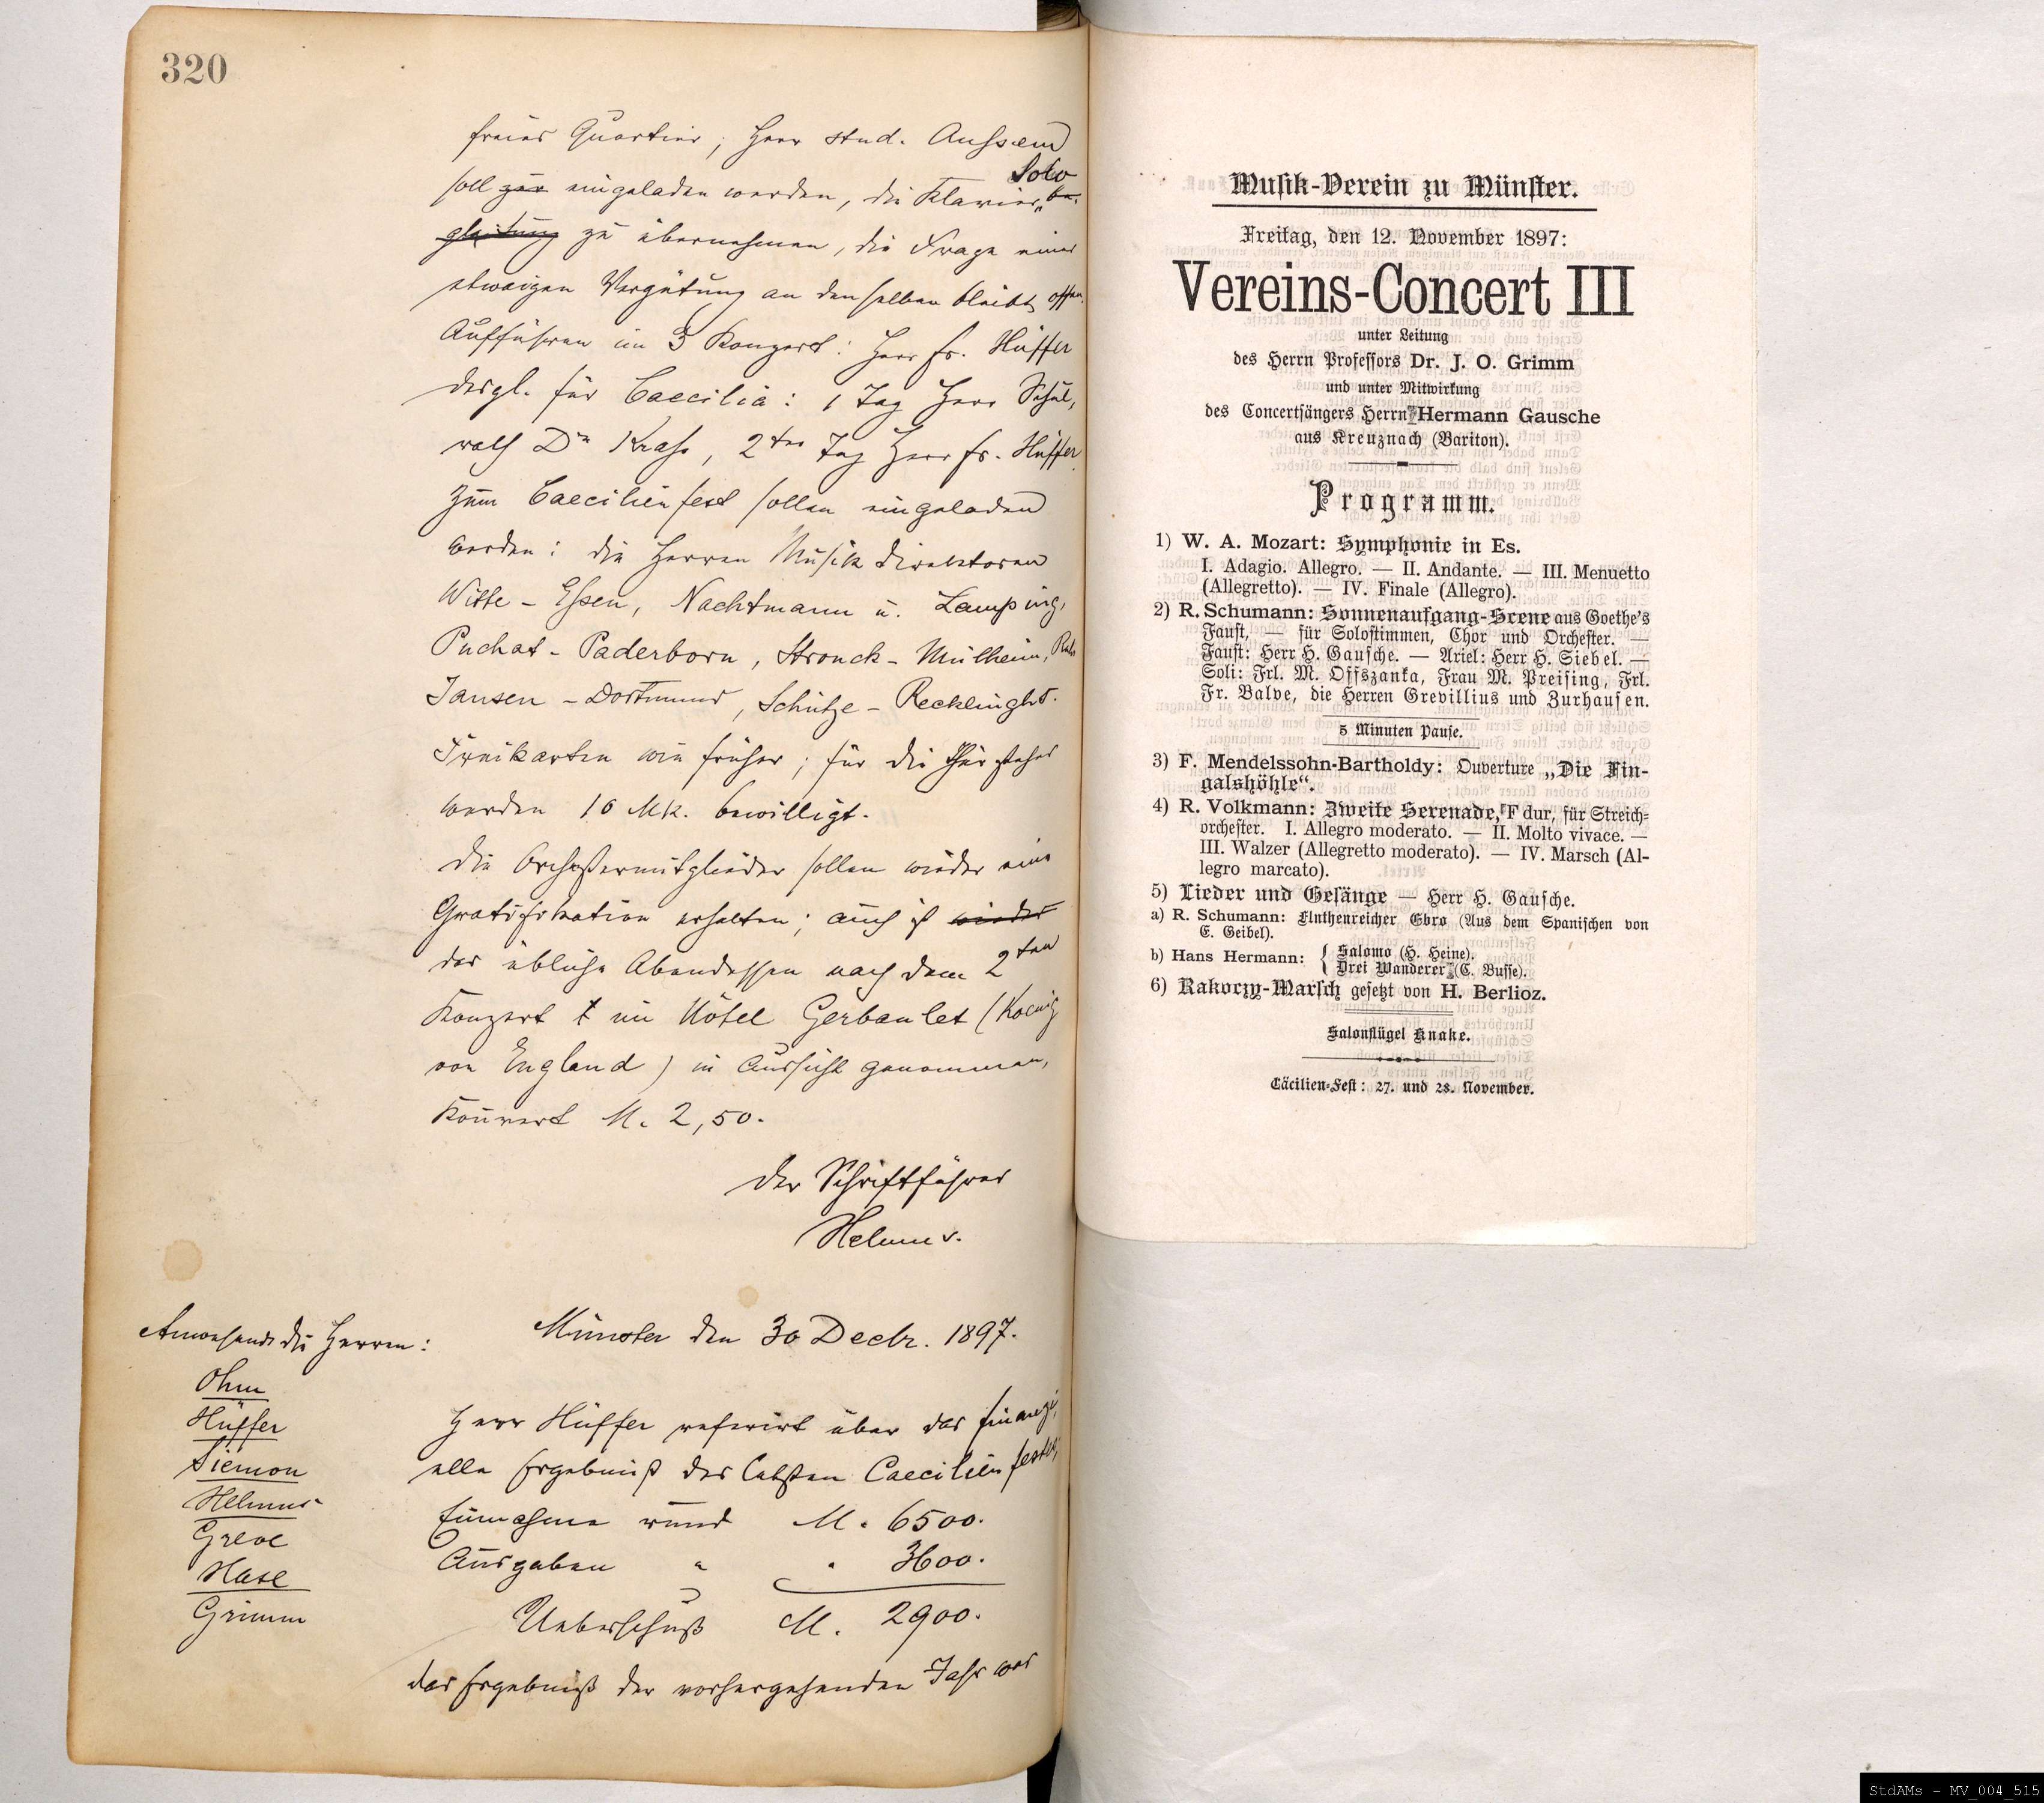 320
freies Quartier; Herr stud. Aussem
Solo
soll zur eingeladen werden, die Klavier„be-
gleitung zu übernehmen, die Frage einer
etwaigen Vergütung an denselben bleibt offen.
Aufführen im 3 Konzert: Herr Fr. Hüffer
desgl. für Caecilia: 1 Tag Herr Schul,
rath Dr Krass, 2ter Tag Herr Fr. Hüffer
Zum Caecilienfest sollen eingeladen
werden: die Herren Musikdirektoren
Witte - Essen, Nachtmann u. Lamping,
Puchat - Paderborn, Stronck - Mülheim, Ruhr
Jansen - Dortmund, Schütze - Recklinghs.
Freikarten wie früher; für die Thürsteher
werden 10 Mk. bewilligt.
Die Orchestermitglieder sollen wieder eine
Gratifikation erhalten; auch ist wieder
das übliche Abendessen nach dem 2ten
Konzert im Hôtel Gerbaulet (Koenig
von England) in Aussicht genommen,
Kouvert M. 2,50.
Der Schriftführer
Helmus.
Anwesend die Herren:
Ohm
Hüffer
Siemon
Helmus
Greve
Hase
Grimm
Münster den 30 Decbr. 1897.
Herr Hüffer referirt über das finanzi,
elle Ergebniß des letzten Caecilienfestes,
Einnahme rund M. 6500.
Ausgaben " " 3600.
Ueberschuß M. 2900.
das Ergebniß der vorhergehenden Jahr war
Musik-Verein zu Münster.
Freitag, den 12. November 1897:
Vereins-Concert III
unter Leitung
des Herrn Professors Dr. J. O. Grimm
und unter Mitwirkung
des Concertsängers Herrn Hermann Gausche
aus Kreuznach (Bariton).
Programm.
1) W. A. Mozart: Symphonie in Es.
I. Adagio. Allegro. — II. Andante. — III. Menuetto
(Allegretto). — IV. Finale (Allegro).
2) R. Schumann: Sonnenaufgang-Scene aus Goethe's
Faust, — für Solostimmen, Chor und Orchester. —
Faust: Herr H. Gausche. — Ariel: Herr H. Siebel. —
Soli: Frl. M. Offszanka, Frau M. Preising, Frl.
Fr. Balve, die Herren Grevillius und Zurhausen.
5 Minuten Pause.
3) F. Mendelssohn-Bartholdy: Ouverture „Die Fin-
galshöhle“.
4) R. Volkmann: Zweite Serenade, F dur, für Streich-
orchester. I. Allegro moderato. — II. Molto vivace. —
III. Walzer (Allegretto moderato). — IV. Marsch (Al-
legro marcato).
5) Lieder und Gesänge — Herr H. Gausche.
a) R. Schumann: Fluthenreicher Ebro (Aus dem Spanischen von
E. Geibel).
b) Hans Hermann: { Salomo (H. Heine).
Drei Wanderer (C. Busse).
6) Rakoczy-Marsch gesetzt von H. Berlioz.
Salonflügel Knake.
Cäcilien-Fest: 27. und 28. November.
StdAMs - MV_004_515